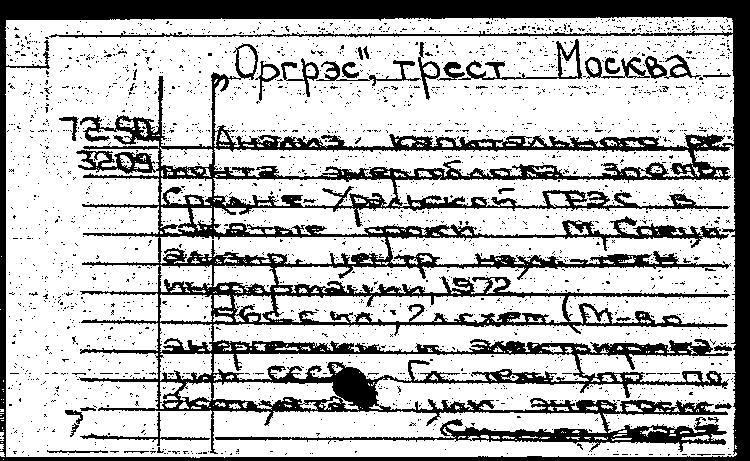 „Оргрэс", трест Москва
72-50
3209
Анализ капитального ре-
монта энергоблока 300 мвт
Средне-Уральской ГРЭС в
сжатые сроки. М. Специ-
ализир. центр науч-техн.
информации, 1972
56с. с ил.; 2 л схем. (М-во
энергетики и электрифика-
ции СССР Гл техн. упр по
эксплуата- ции энергосис-